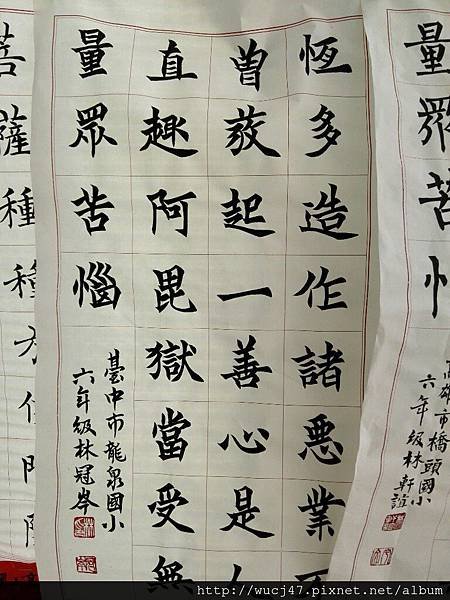 量眾苦
高雄市橋頭國小
六年級林軒誼
恆多造作諸惡業
曾發起一善心是人
直趣阿毘獄當受無
量眾苦惱
臺中市龍泉國小
六年級林冠岑
菩薩種種
http://wucj47.pixnet.net/album